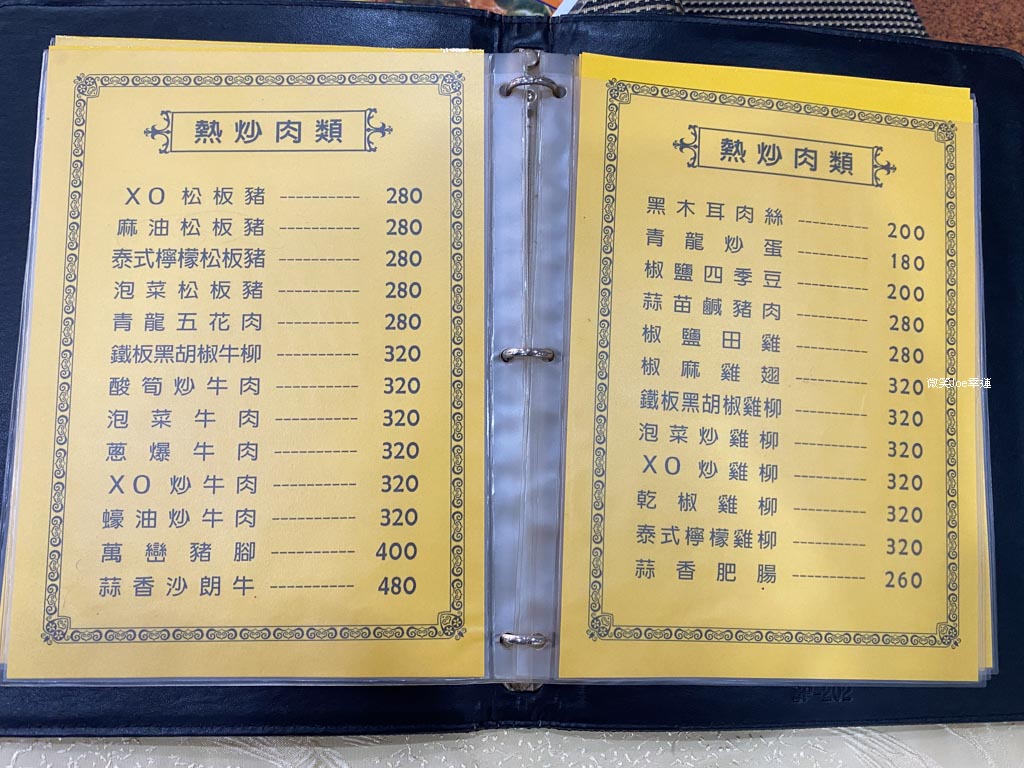 熱炒肉類
XO松板豬 ---------- 280
麻油松板豬 ---------- 280
泰式檸檬松板豬 ---------- 280
泡菜松板豬 ---------- 280
青龍五花肉 ---------- 280
鐵板黑胡椒牛柳 ---------- 320
酸筍炒牛肉 ---------- 320
泡菜牛肉 ---------- 320
蔥爆牛肉 ---------- 320
XO炒牛肉 ---------- 320
蠔油炒牛肉 ---------- 320
萬巒豬腳 ---------- 400
蒜香沙朗牛 ---------- 480
熱炒肉類
黑木耳肉絲 ---------- 200
青龍炒蛋 ---------- 180
椒鹽四季豆 ---------- 200
蒜苗鹹豬肉 ---------- 280
椒鹽田雞 ---------- 280
椒麻雞翅 ---------- 320
鐵板黑胡椒雞柳 ---------- 320
泡菜炒雞柳 ---------- 320
XO炒雞柳 ---------- 320
乾椒雞柳 ---------- 320
泰式檸檬雞柳 ---------- 320
蒜香肥腸 ---------- 260
微笑Joe幸運